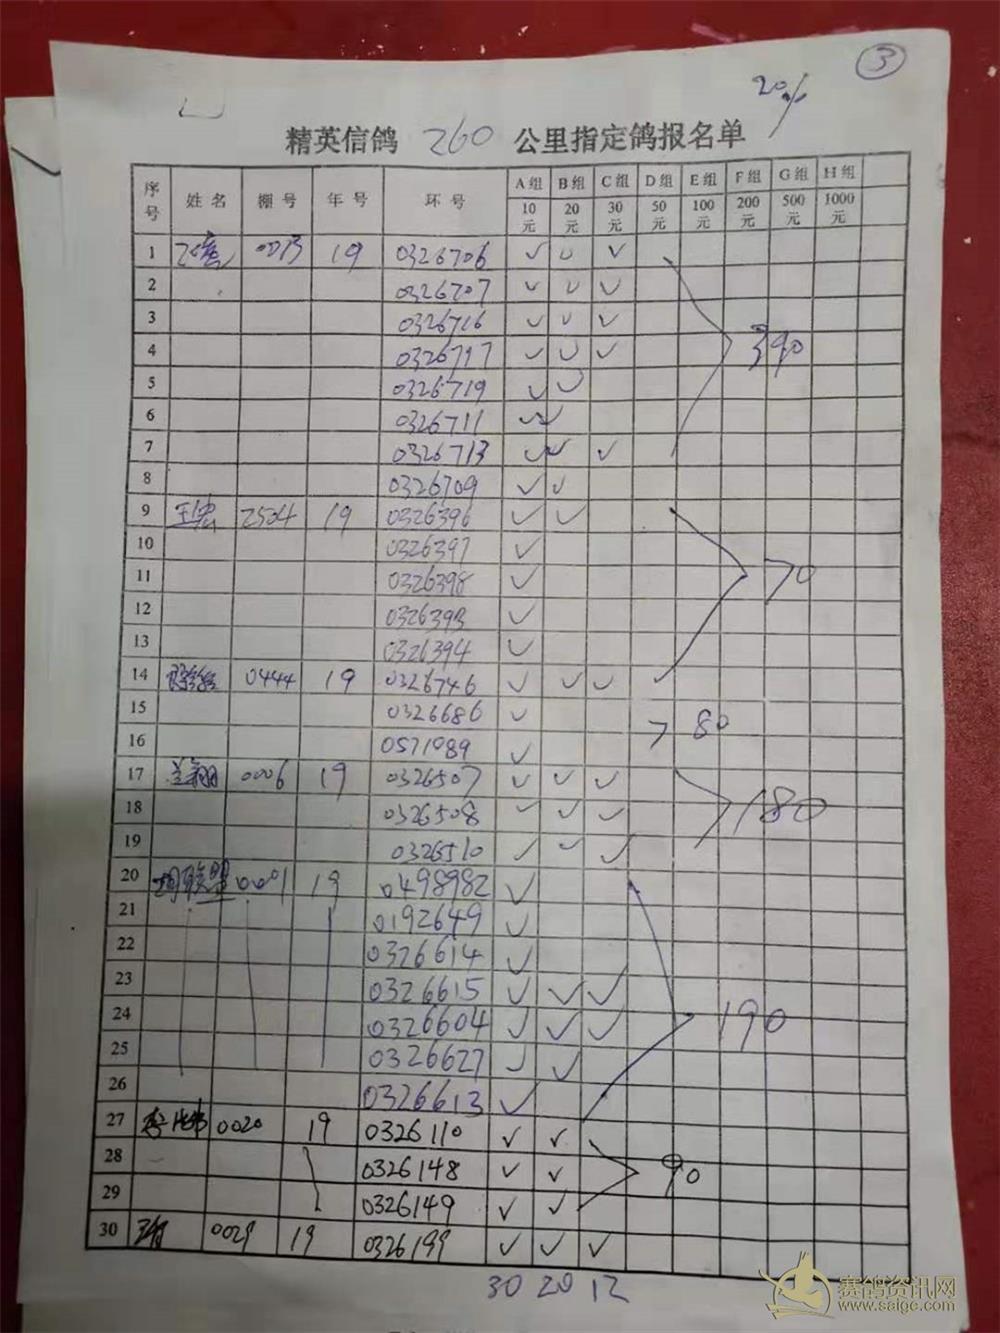 ③
20%
精英信鸽 260 公里指定鸽报名单
序号 姓名 棚号 年号 环号 A组 B组 C组 D组 E组 F组 G组 H组
10元 20元 30元 50元 100元 200元 500元 1000元
1 19 0326706 ✓ ✓ ✓
2 0326707 ✓ ✓ ✓
3 0326716 ✓ ✓ ✓
4 0326717 ✓ ✓ ✓ 390
5 0326719 ✓ ✓
6 0326711 ✓ ✓
7 0326713 ✓ ✓ ✓
8 0326709 ✓ ✓
9 2504 19 0326396 ✓ ✓
10 0326397 ✓
11 0326398 ✓ 70
12 0326393 ✓
13 0326394 ✓
14 0444 19 0326746 ✓ ✓ ✓
15 0326686 ✓ 80
16 0571089 ✓
17 0006 19 0326507 ✓ ✓ ✓
18 0326508 ✓ ✓ ✓ 180
19 0326510 ✓ ✓ ✓
20 胡联盟 0001 19 0498982 ✓
21 0192649 ✓
22 0326614 ✓
23 0326615 ✓ ✓ ✓
24 0326604 ✓ ✓ ✓ 190
25 0326627 ✓ ✓
26 0326613 ✓
27 0020 19 0326110 ✓ ✓
28 0326148 ✓ ✓ 90
29 0326149 ✓ ✓
30 0029 19 0326199 ✓ ✓ ✓
30 20 12
赛鸽资讯网
www.saigc.com